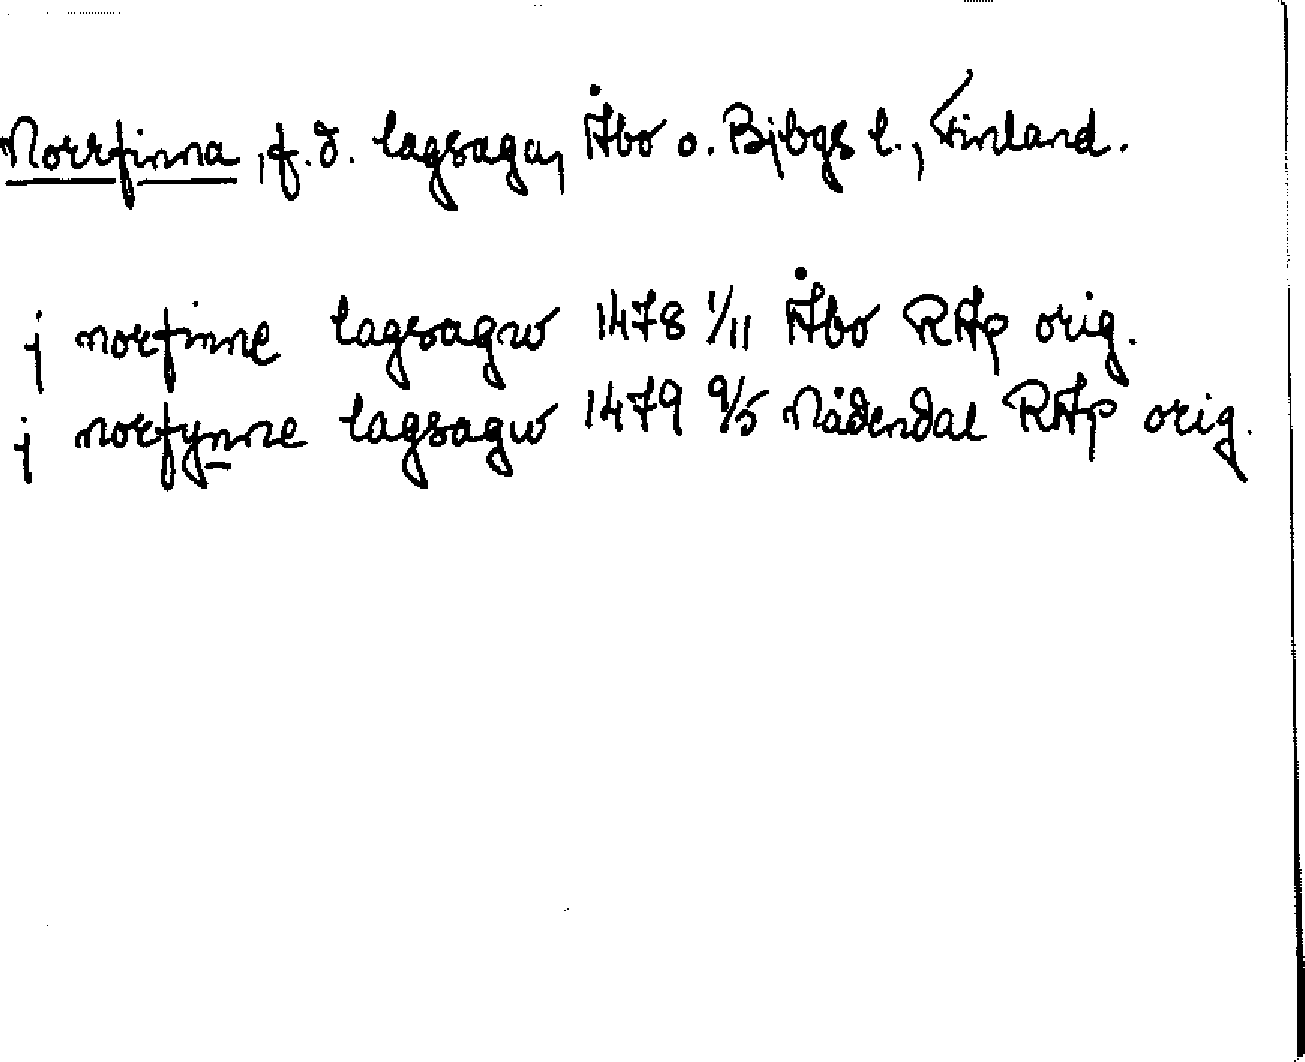 Norrfinna, f.d. lagsaga, Åbo o. Bjbgs l., Finland.
j norfinne lagsagw 1478 1/11 Åbo RAp orig.
j norfynne lagsagw 1479 9/5 Nådendal RAp orig.